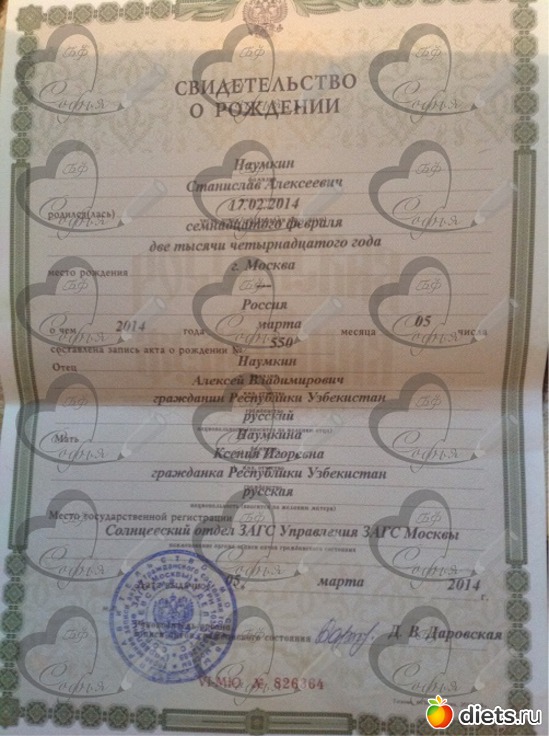 СВИДЕТЕЛЬСТВО
О РОЖДЕНИИ
Наумкин
Станислав Алексеевич
родился(лась) 17.02.2014
семнадцатого февраля
две тысячи четырнадцатого года
место рождения г. Москва
---
Россия
о чем 2014 года марта месяца 05 числа
составлена запись акта о рождении № 550
Отец Наумкин
Алексей Владимирович
гражданин Республики Узбекистан
русский
Мать Наумкина
Ксения Игоревна
гражданка Республики Узбекистан
русская
Место государственной регистрации
Солнцевский отдел ЗАГС Управления ЗАГС Москвы
05 марта 2014 г.
Д. В. Даровская
VI-МЮ № 826364
БФ
Софья
diets.ru